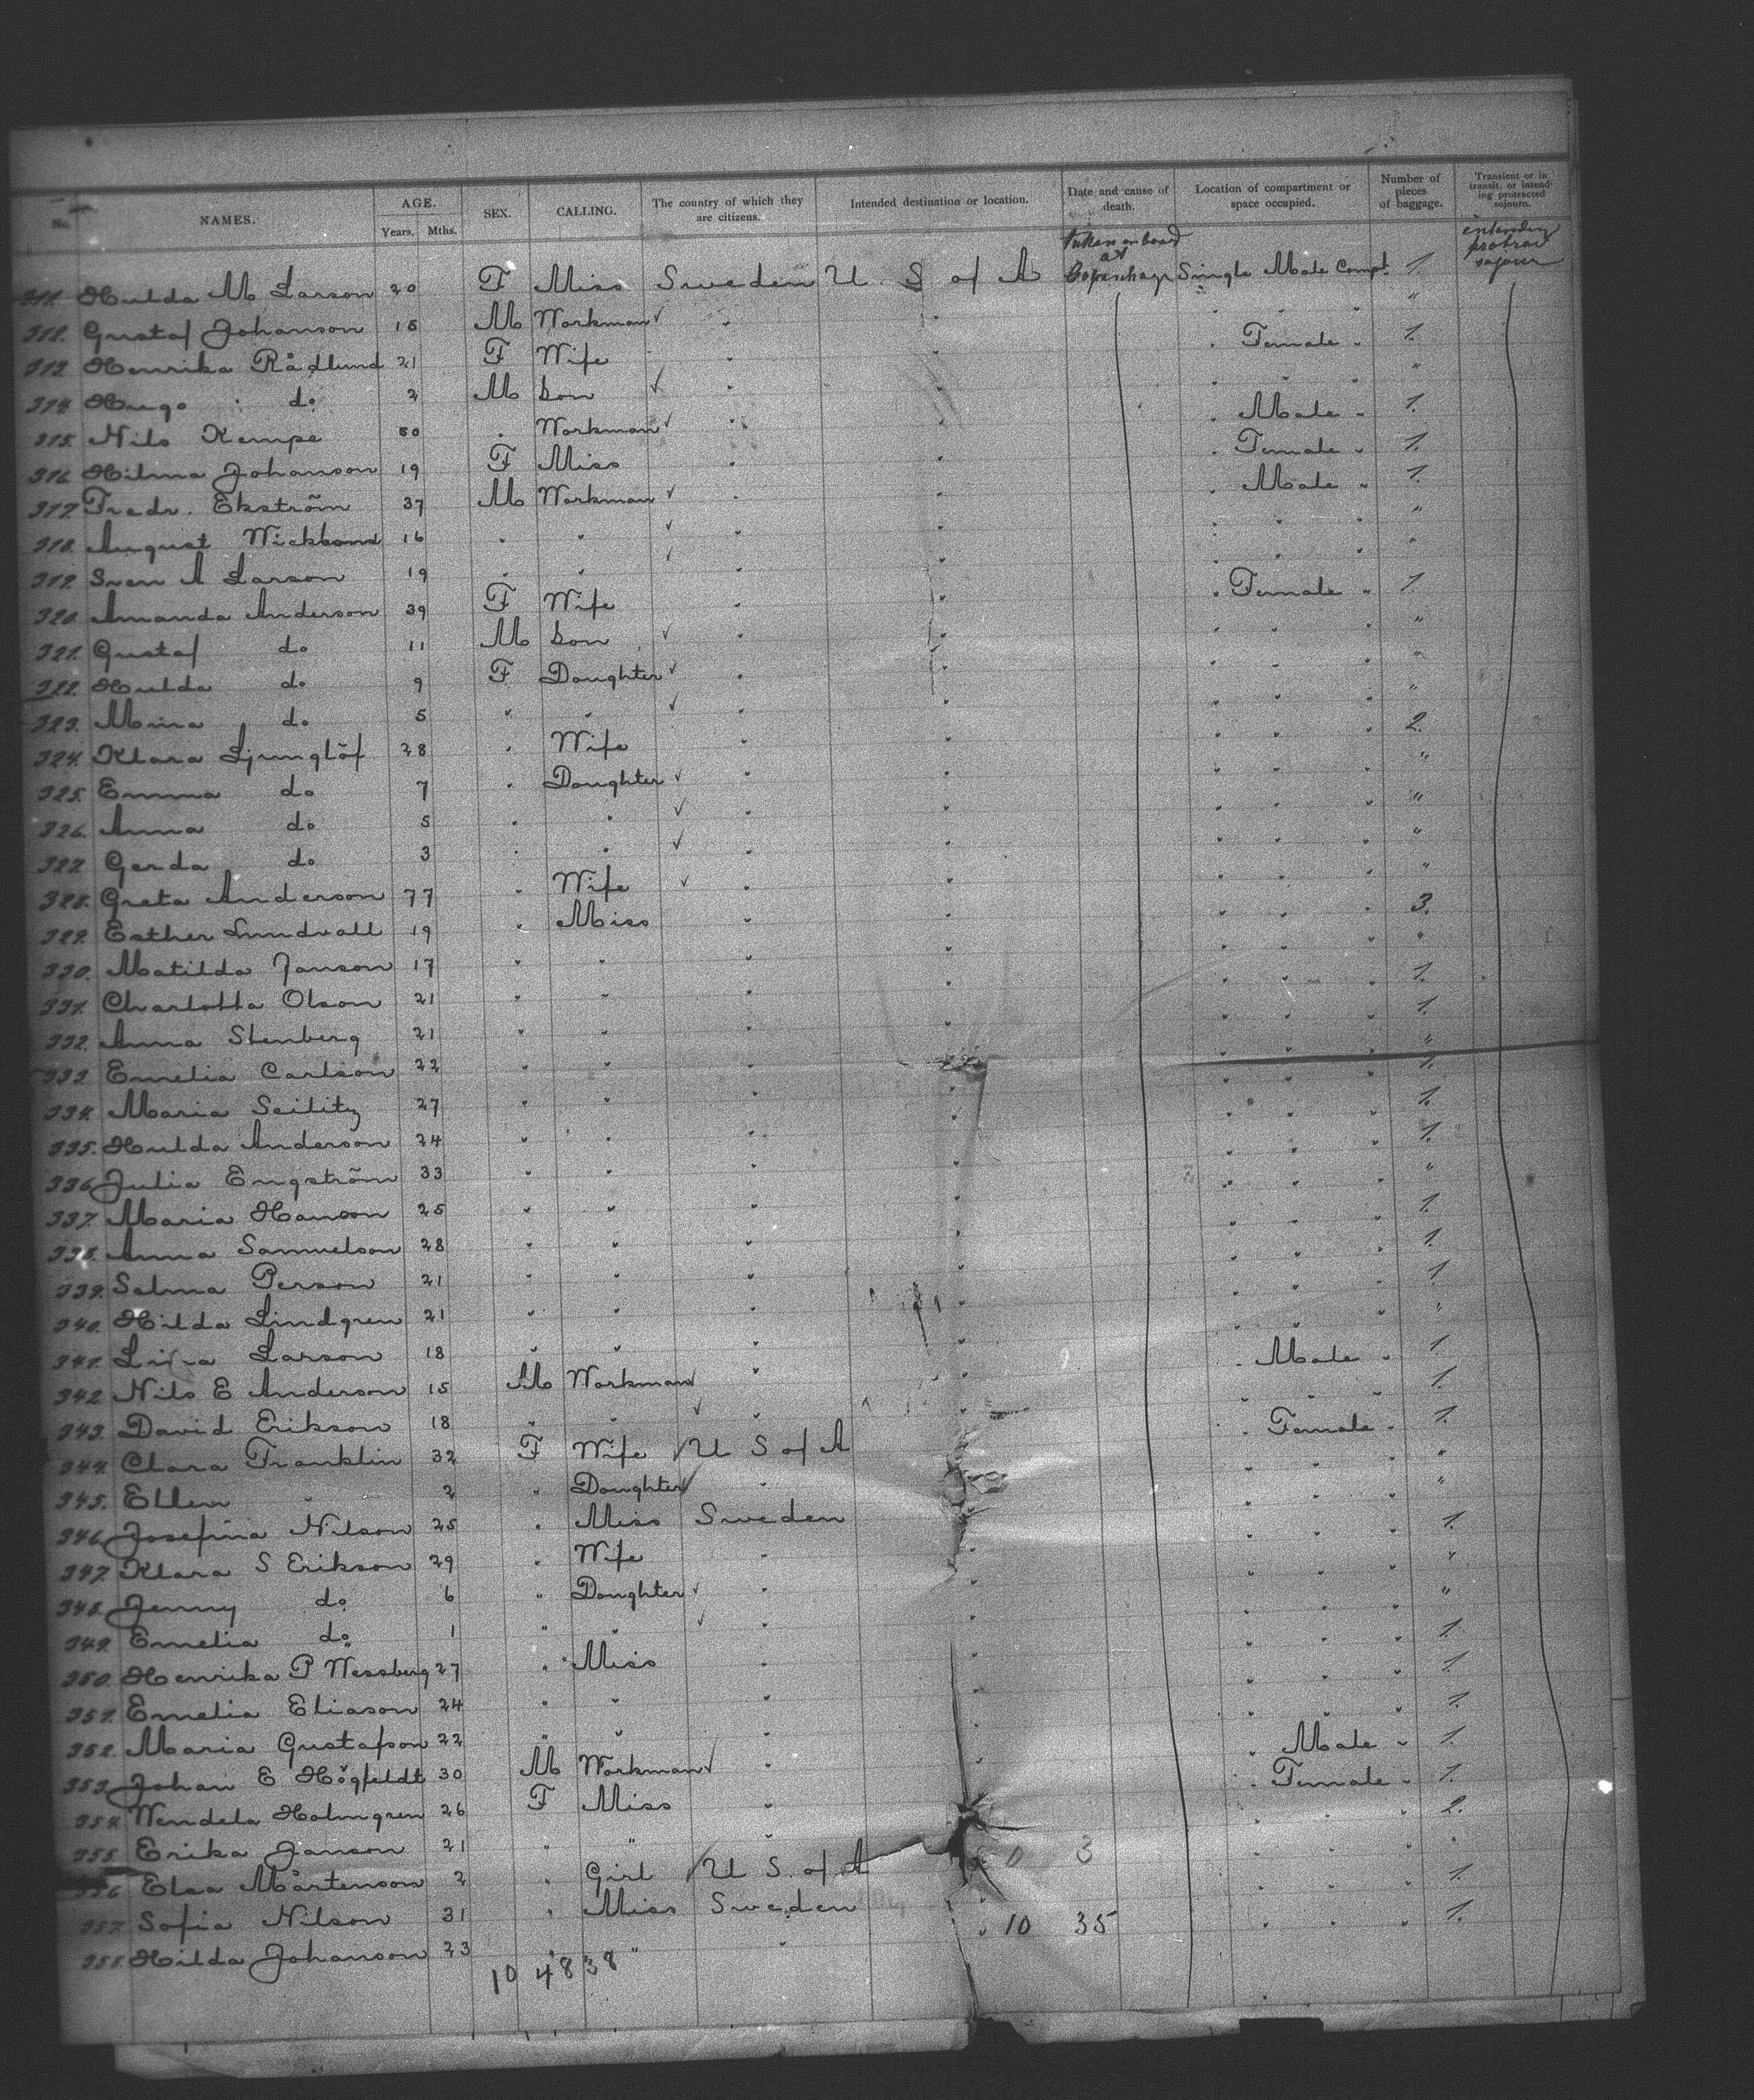 No. NAMES. AGE. Years. Mths. SEX. CALLING. The country of which they are citizens. Intended destination or location. Date and cause of death. Location of compartment or space occupied. Number of pieces of baggage. Transient or in transit, or intending protracted sojourn.
311. Hulda M Larson 20 F Miss Sweden U. S of A taken on board at Copenhage Single Male Compt. 1. intending protrac sojour
312. Gustaf Johanson 18 M Workman " " " " " "
313. Henrika Rådlund 21 F Wife " " " Female " 1.
314. Hugo do 2 M Son " " " " " "
315. Nils Kempe 50 " Workman " " " Male " 1.
316. Hilma Johanson 19 F Miss " " " Female " 1.
317. Fredr. Ekström 37 M Workman " " " Male " 1.
318. August Wickbond 16 " " " " " " " "
319. Sven A Larson 19 " " " " " " " "
320. Amanda Anderson 39 F Wife " " " Female " 1.
321. Gustaf do 11 M Son " " " " " "
322. Hulda do 9 F Daughter " " " " " "
323. Mina do 5 " " " " " " " "
324. Klara Ljunglöf 28 " Wife " " " " " 2.
325. Emma do 7 " Daughter " " " " " "
326. Anna do 5 " " " " " " " "
327. Gerda do 3 " " " " " " " "
328. Greta Anderson 77 " Wife " " " " " "
329. Esther Lundvall 19 " Miss " " " " " 3.
330. Matilda Janson 17 " " " " " " " "
331. Charlotta Olson 21 " " " " " " " 1.
332. Anna Stenberg 21 " " " " " " " 1.
333. Emelia Carlson 22 " " " " " " " "
334. Maria Seilitz 27 " " " " " " " 1.
335. Hulda Anderson 24 " " " " " " " 1.
336. Julia Engström 33 " " " " " " " 1.
337. Maria Hanson 25 " " " " " " " "
338. Anna Samuelson 28 " " " " " " " 1.
339. Selma Person 21 " " " " " " " 1.
340. Hilda Lindgren 21 " " " " " " " 1.
341. Larson 18 " " " " " " " "
342. Nils E Anderson 15 M Workman " " " Male " 1.
343. David Erikson 18 " " " " " " " 1.
344. Clara Franklin 32 F Wife U S of A " " Female " 1.
345. Ellen " 2 " Daughter " " " " " "
346. Josefina Nilson 25 " Miss Sweden " " " " "
347. Klara S Erikson 29 " Wife " " " " " 1.
348. Jenny do 6 " Daughter " " " " " "
349. Emelia do 1 " " " " " " " "
350. Henrika P Wessberg 27 " Miss " " " " " 1.
351. Emelia Eliason 24 " " " " " " " 1.
352. Maria Gustafson 22 " " " " " " " 1.
353. Johan E Högfeldt 30 M Workman " " " Male " 1.
354. Wendela Holmgren 26 F Miss " " " Female " 1.
355. Erika Janson 21 " " " " " " " 2.
356. Elsa Mårtenson 2 " Girl U S. of A 0 3 " " " "
357. Sofia Nilson 31 " Miss Sweden " " " " 1.
358. Hilda Johanson 23 " " " " 10 35 " " " 1.
10 48 38